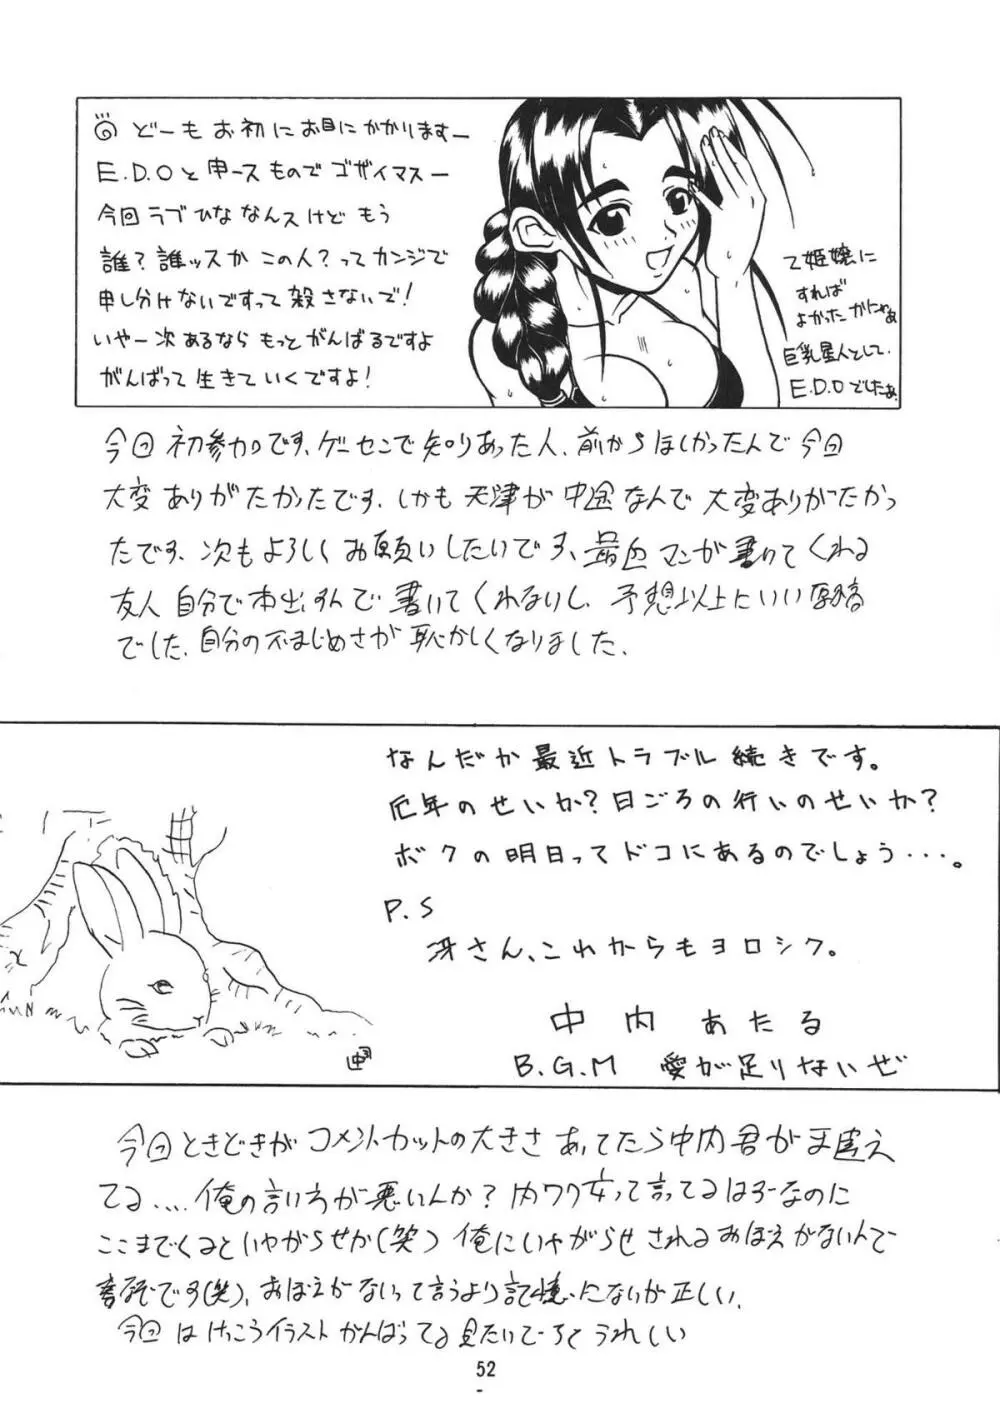 どーもお初にお目にかかりますー
E.D.Oと申ース ものでゴザイマスー
今回ラブひななんスけど もう
誰?誰ッスか この人?ってカンジで
申し分けないですって 殺さないで!
いやー次あるなら もっとがんばるですよ
がんばって 生きていくですよ!
乙姫嬢に
すれば
よかったかにゃあ
巨乳星人として.
E.D.Oでしたぁ.
今回 初参加です、ゲーセンで知りあった人、前からほしかったんで今回
大変ありがたかったです、しかも 天津が中途なんで大変ありがたかっ
たです、次もよろしくお願いしたいです、最近マンが書いてくれる
友人 自分で本出すんで書いてくれないし、予想以上にいい原稿
でした、自分の不まじめさが恥かしくなりました、
なんだか最近トラブル続きです。
厄年のせいか?日ごろの行いのせいか?
ボクの明日ってドコにあるのでしょう・・・。
P.S
冴さん、これからもヨロシク。
中内 あたる
B.G.M 愛が足りないぜ
今回ときどきがコメントカットの大きさ あってたら中内君がまちがえ
てる....俺の言い方が悪いんか?内ワク
ここまでくるといやがらせか(笑)俺にいやがらせされるおぼえがないんで
です(笑)、おぼえがないって言うより記憶にないが正しい、
今回はけっこうイラストがんばってる見たい
うれしい
52